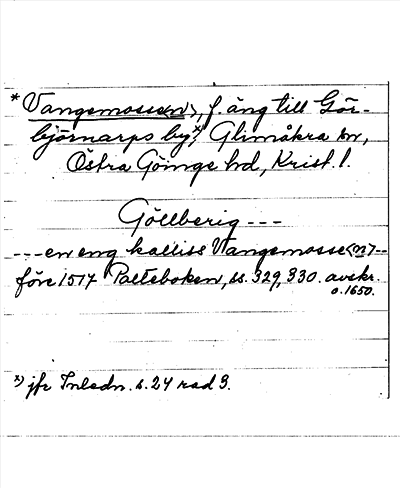 * Vangemosse<n>, f. äng till Gör-
björnarps by,x) Glimåkra sn,
Östra Göinge hd, Krist. l.
Göllberig ---
--- en eng kalliss Wangemosse<n> --
före 1517 Palteboken, ss. 329, 330. avskr.
o. 1650.
x) jfr Inledn. s. 24 rad 3.